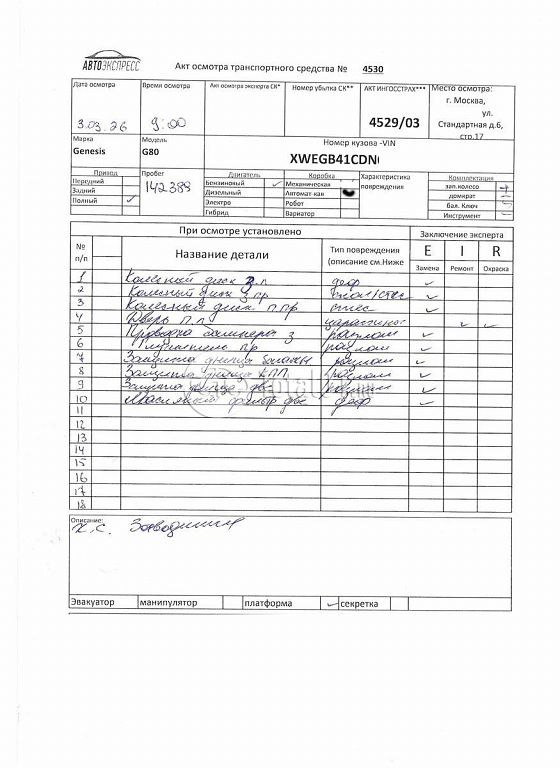 АВТОЭКСПРЕСС
Акт осмотра транспортного средства № 4530
Дата осмотра
3.03.26
Время осмотра
9:00
Акт осмотра эксперта СК*
Номер убытка СК**
АКТ ИНГОССТРАХ***
4529/03
Место осмотра:
г. Москва,
ул.
Стандартная д.6,
стр.17
Марка
Genesis
Модель
G80
Номер кузова -VIN
XWEGB41CDN
Привод
Передний
Задний
Полный
Пробег
142388
Двигатель
Бензиновый
Дизельный
Электро
Гибрид
Коробка
Механическая
Автомат-кая
Робот
Вариатор
Характеристика
повреждения
Комплектация
зап.колесо
домкрат
бал. Ключ
Инструмент
При осмотре установлено
Заключение эксперта
№
п/п
Название детали
Тип повреждения
(описание см.Ниже
E I R
Замена Ремонт Окраска
1 Колесный диск З.Л деф
2 Колесный диск З пр
3 Колесный диск П.Пр
4 Дверь П.Л царапины
5 Проводка бампера З разлом
6 Глушитель Пр разлом
7 Защита днища разлом
8 Защита днища КПП разлом
9 Защита днища дв разлом
10 Масляный фильтр дв деф
11
12
13
14
15
16
17
18
Описание:
Х.С. Заводится
Эвакуатор манипулятор платформа секретка